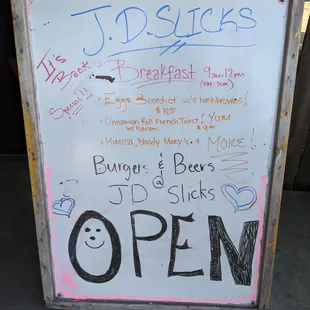 J.D. SLICKS
It's Back
Special!!
Breakfast 9am-12pm
(SAT. SUN)
· Eggs Benedict w/s hashbrowns!
· Cinnamon Roll French Toast! YUM
w/ Bacon
· Mimosa, Bloody Mary's & MORE!
Burgers & Beers
@
JD Slicks
OPEN